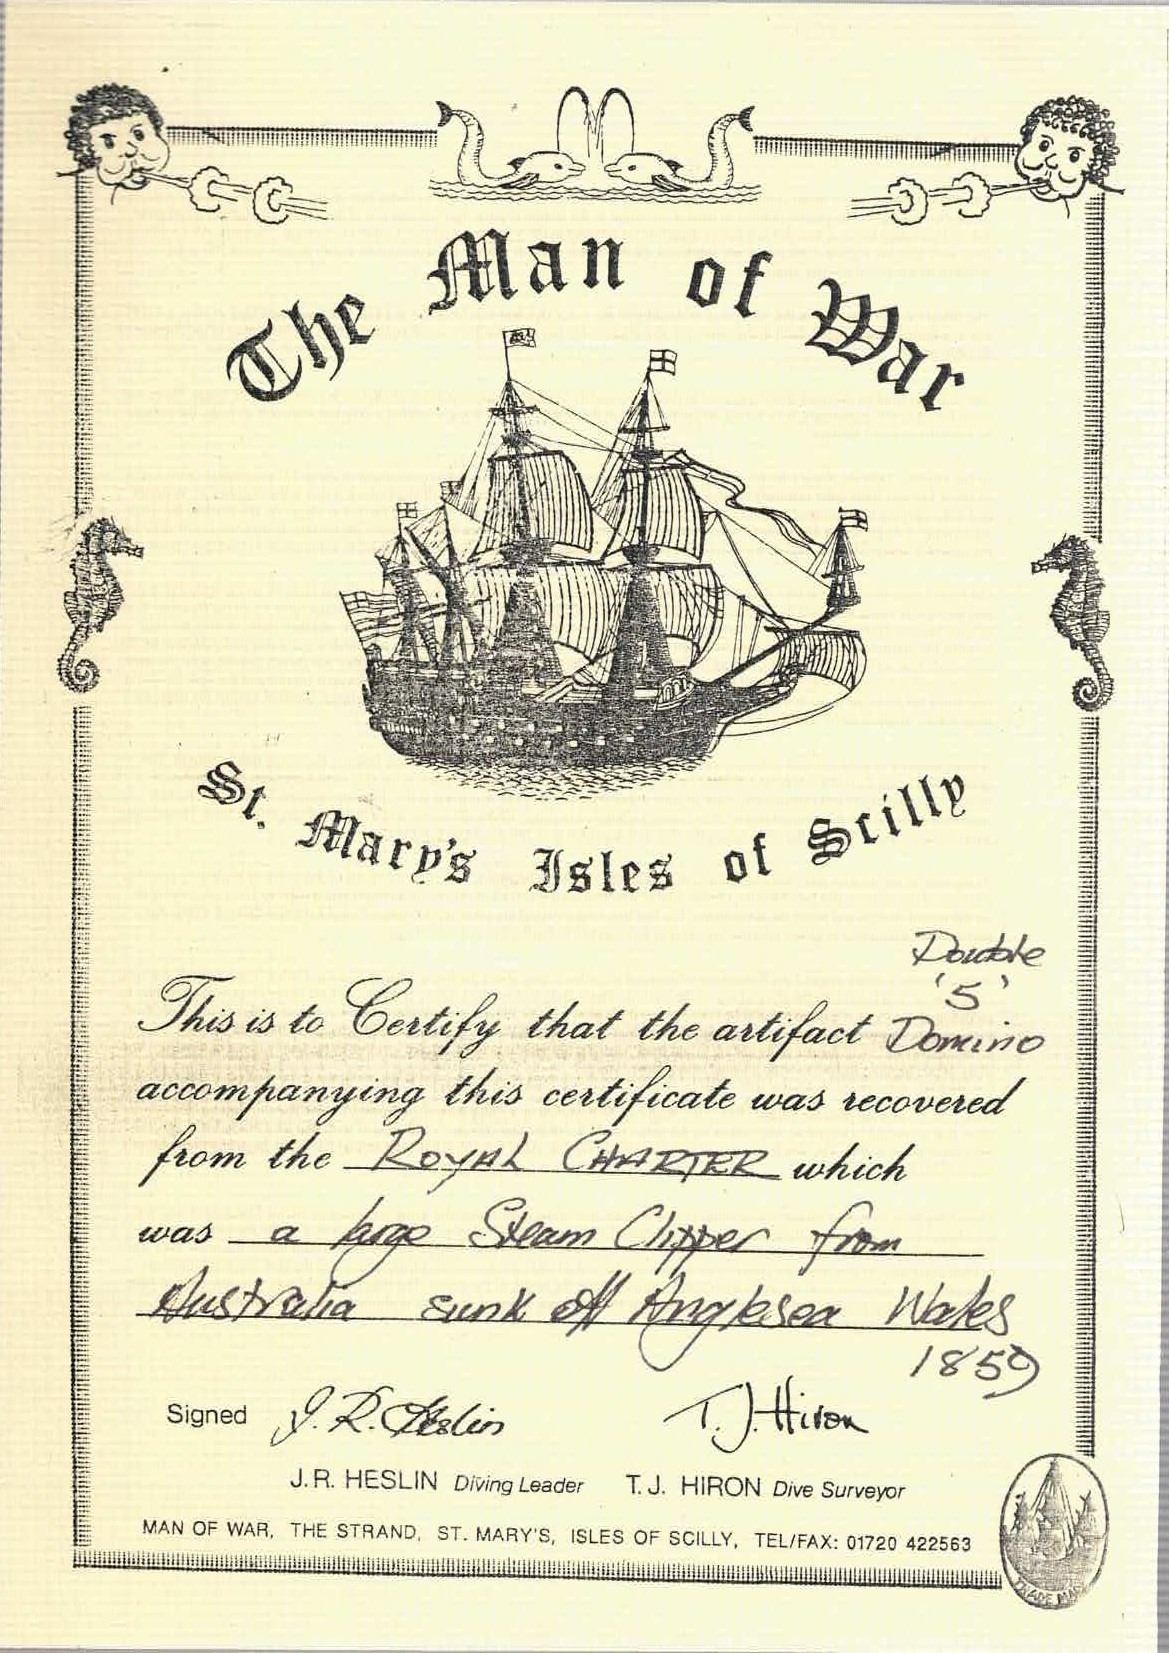 The Man of War
St. Mary's Isles of Scilly
Double
'5'
This is to Certify that the artifact Domino
accompanying this certificate was recovered
from the ROYAL CHARTER which
was a large Steam Clipper from
Australia sunk off Anglesea Wales
1859
Signed J. R. Heslin T. J. Hiron
J.R. HESLIN Diving Leader T. J. HIRON Dive Surveyor
MAN OF WAR, THE STRAND, ST. MARY'S, ISLES OF SCILLY, TEL/FAX: 01720 422563
TRADE MARK